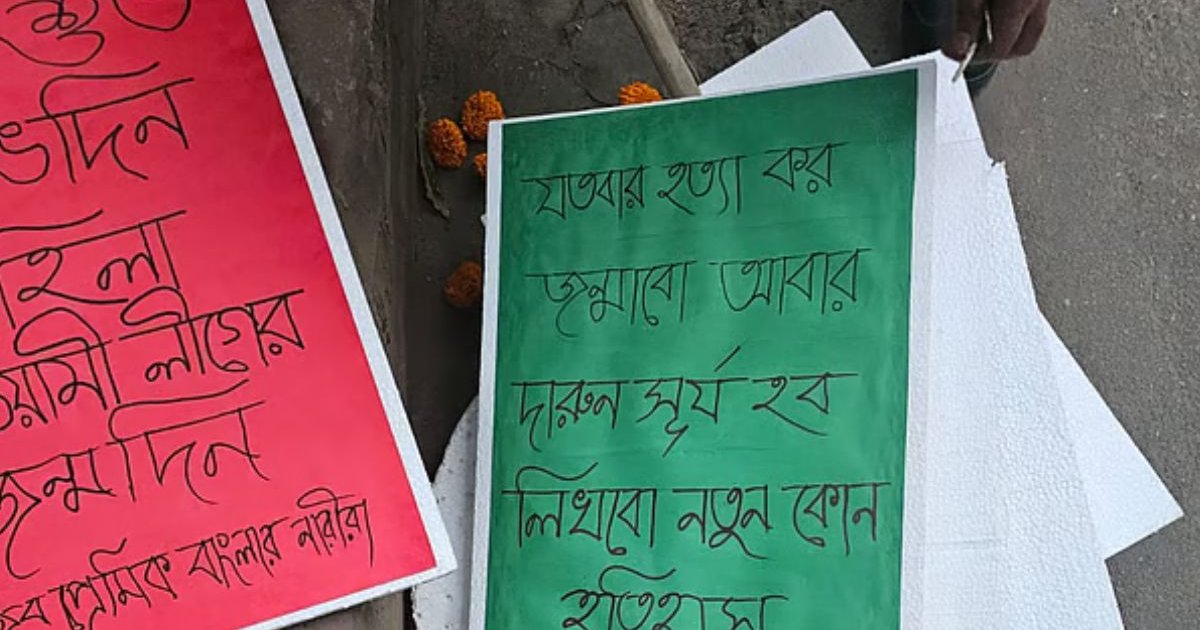 শুভ
দিন
মহিলা
আওয়ামী লীগের
জন্মদিন
প্রেমিক বাংলার নারীরা
যতবার হত্যা কর
জন্মাবো আবার
দারুন সূর্য হব
লিখবো নতুন কোন
ইতিহাস